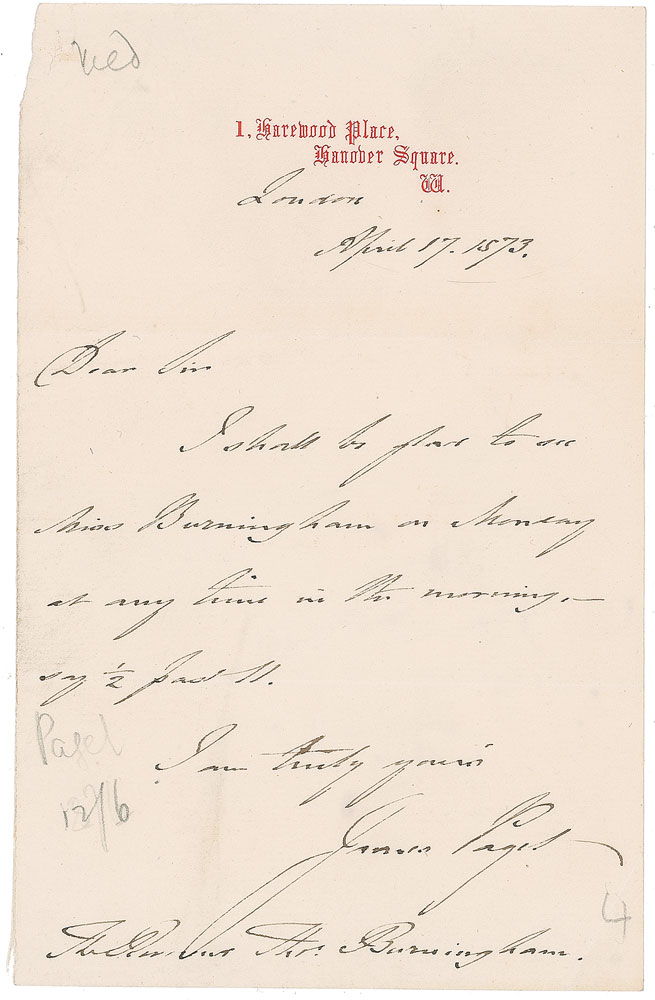 Med
1, Harewood Place,
Hanover Square.
W.
London
April 17. 1873.
Dear Sir
I shall be glad to see
Miss Burningham on Monday
at any time in the morning, —
say ½ past 11.
I am truly yours
James Paget
Paget
12/6
4
The Revd Thos. Burningham.